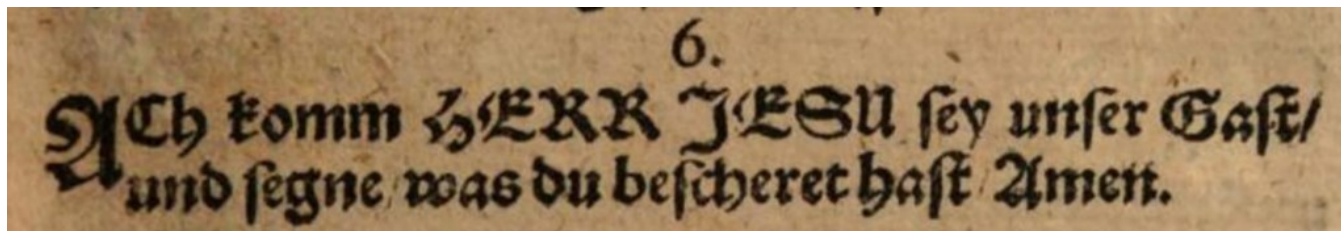 6.
ACh komm HERR JESU sey unser Gast/
und segne/ was du bescheret hast/ Amen.